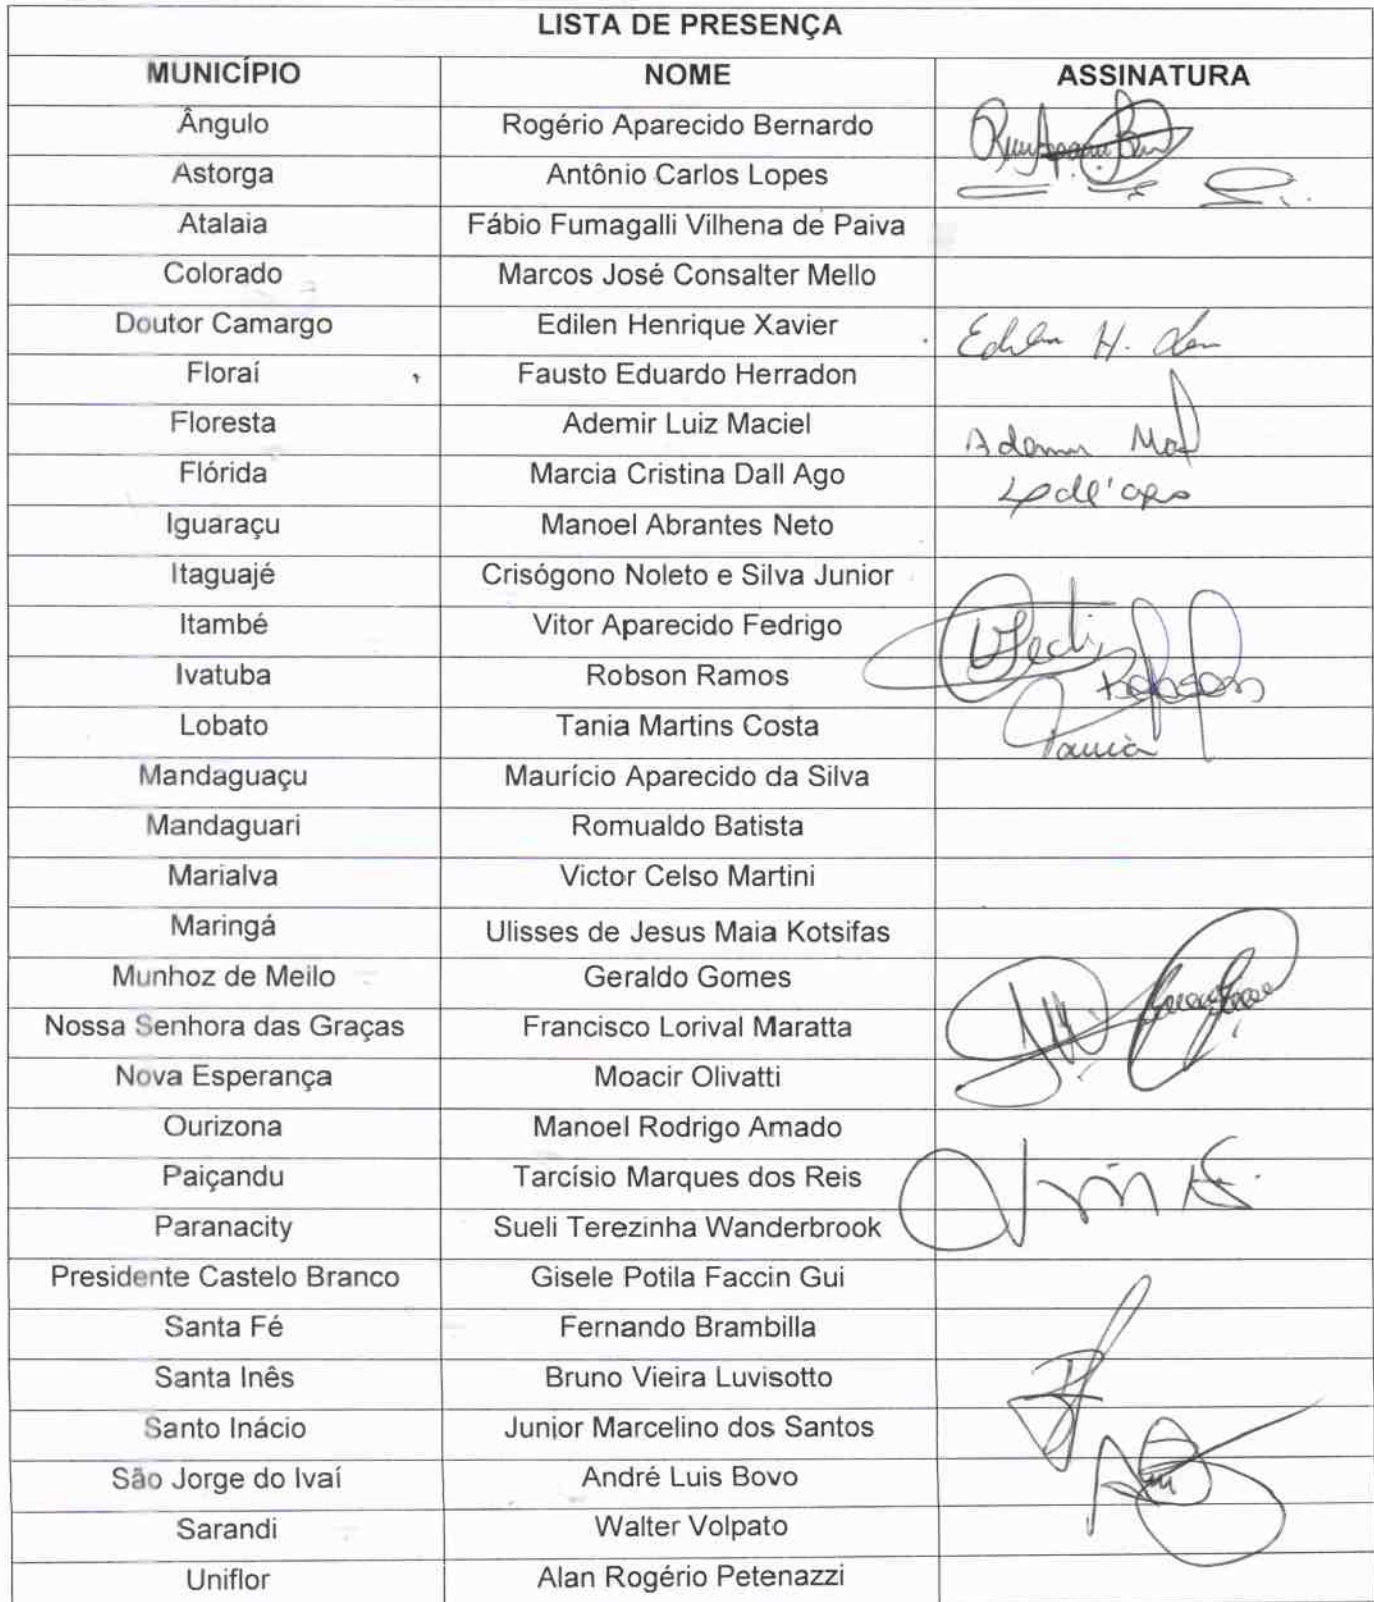 LISTA DE PRESENÇA
MUNICÍPIO NOME ASSINATURA
Ângulo Rogério Aparecido Bernardo
Astorga Antônio Carlos Lopes
Atalaia Fábio Fumagalli Vilhena de Paiva
Colorado Marcos José Consalter Mello
Doutor Camargo Edilen Henrique Xavier
Floraí Fausto Eduardo Herradon
Floresta Ademir Luiz Maciel
Flórida Marcia Cristina Dall Ago
Iguaraçu Manoel Abrantes Neto
Itaguajé Crisógono Noleto e Silva Junior
Itambé Vitor Aparecido Fedrigo
Ivatuba Robson Ramos
Lobato Tania Martins Costa
Tania
Mandaguaçu Maurício Aparecido da Silva
Mandaguari Romualdo Batista
Marialva Victor Celso Martini
Maringá Ulisses de Jesus Maia Kotsifas
Munhoz de Mello Geraldo Gomes
Nossa Senhora das Graças Francisco Lorival Maratta
Nova Esperança Moacir Olivatti
Ourizona Manoel Rodrigo Amado
Paiçandu Tarcísio Marques dos Reis
Paranacity Sueli Terezinha Wanderbrook
Presidente Castelo Branco Gisele Potila Faccin Gui
Santa Fé Fernando Brambilla
Santa Inês Bruno Vieira Luvisotto
Santo Inácio Junior Marcelino dos Santos
São Jorge do Ivaí André Luis Bovo
Sarandi Walter Volpato
Uniflor Alan Rogério Petenazzi